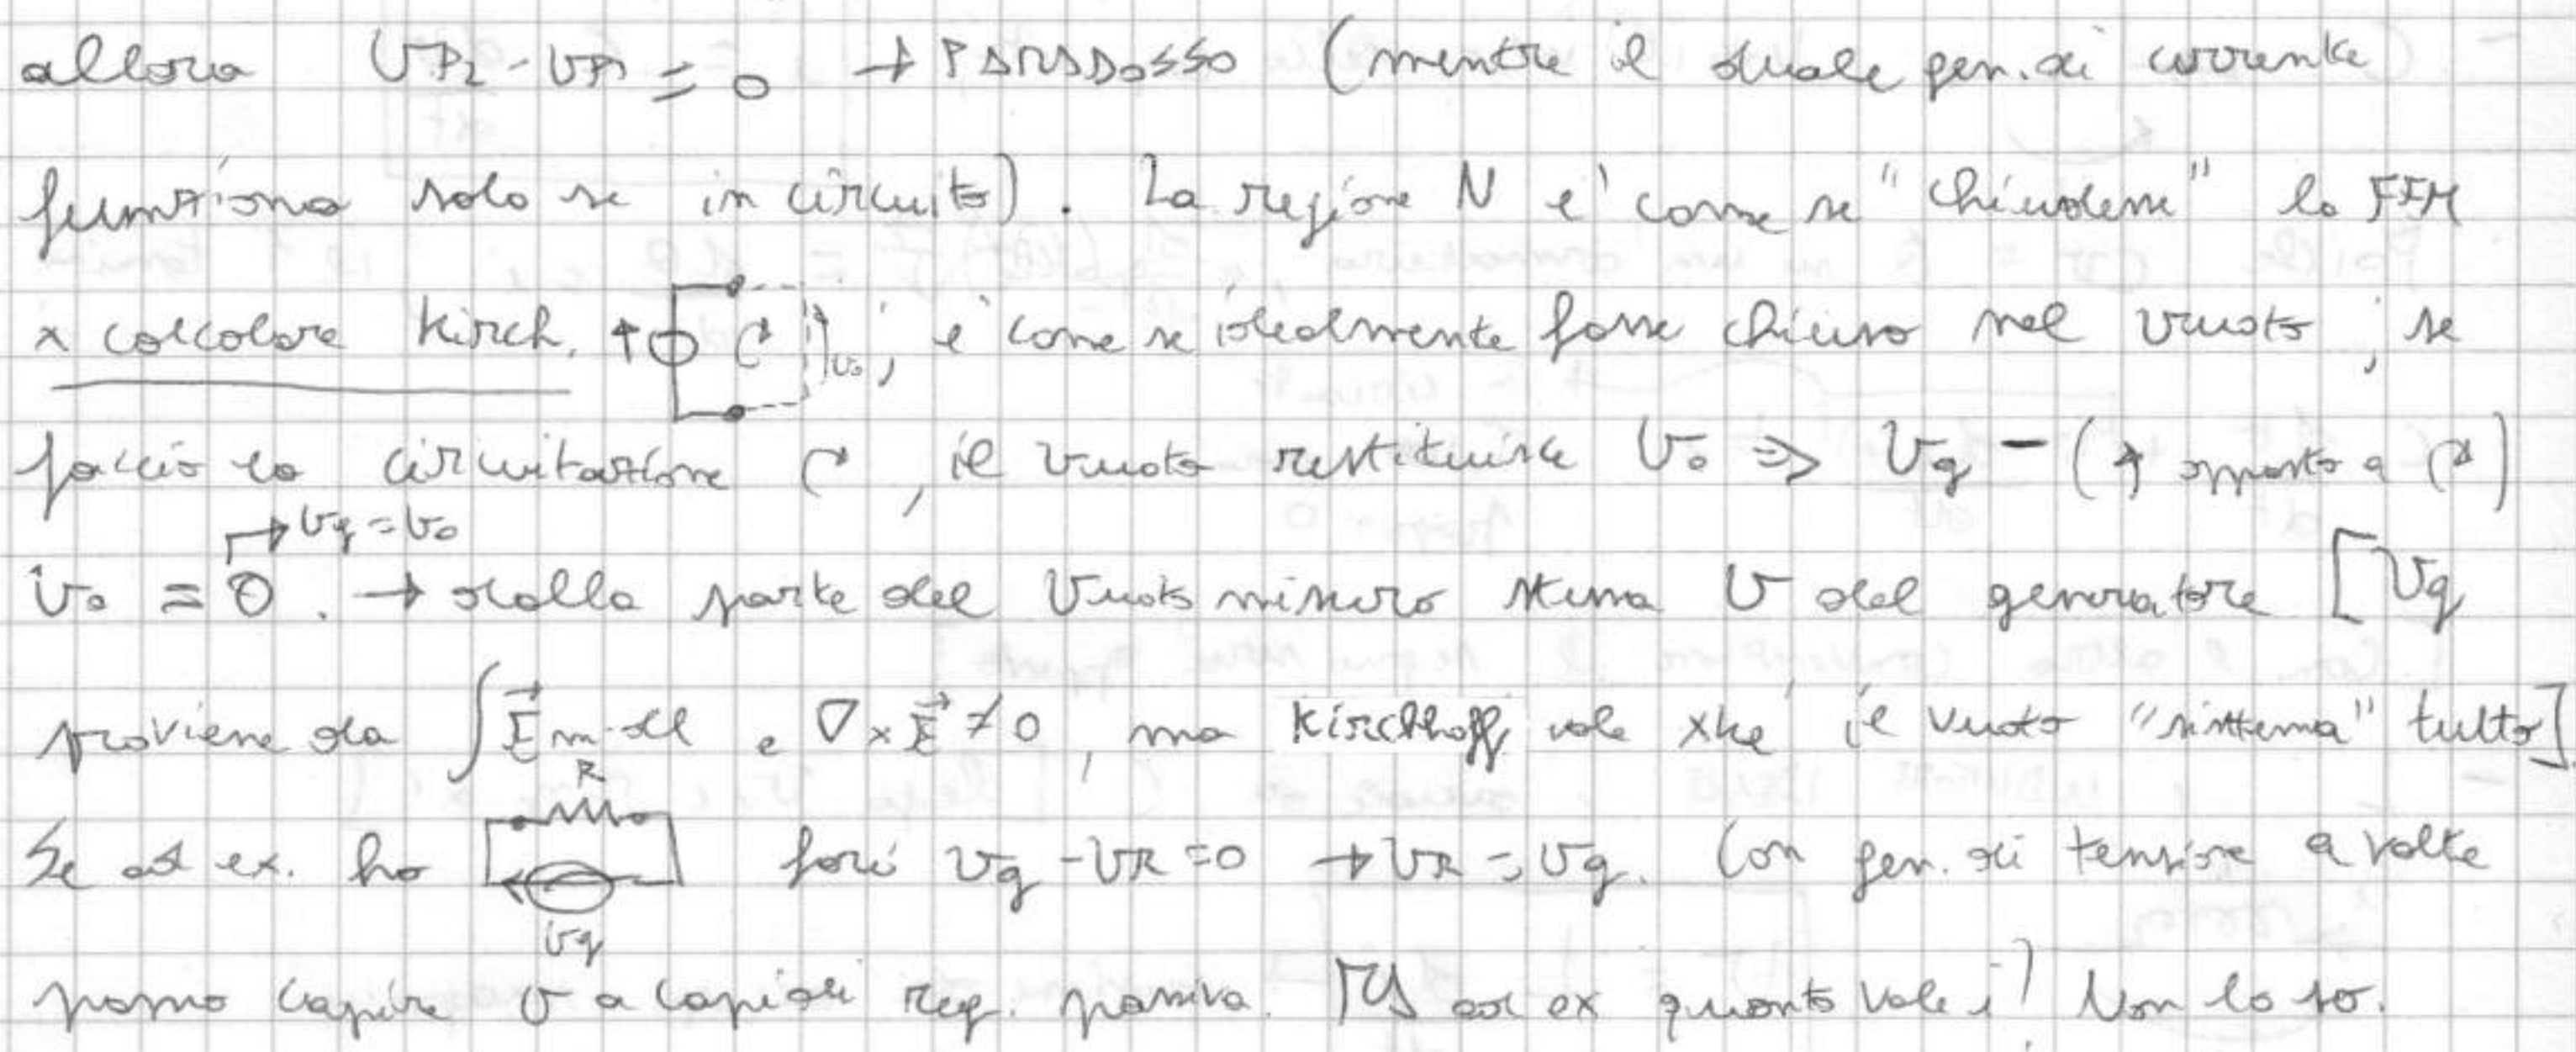 allora VP2 - VP1 = 0 → PARADOSSO (mentre il duale gen. di corrente
funziona solo se in circuito). La regione N e' come se "chiudesse" la FEM
x calcolare Kirch. v0, e' come se idealmente fosse chiuso nel vuoto; se
faccio la circuitazione ↻, il vuoto restituisce V0 ⇒ Vg - (↑ opposto a ↻)
→ Vg = V0
V0 = 0. → dalla parte del vuoto misuro stessa V del generatore [Vg
proviene da ∫ E⃗m · dl e ∇ x E⃗ ≠ 0, ma Kirchhoff vale xke' il vuoto "sistema" tutto]
R
Se ad ex. ho farei Vg - VR = 0 → VR = Vg. Con gen. di tensione a volte
Vg
posso capire V a capi di reg. passiva. MA ad ex quanto vale i? Non lo so.